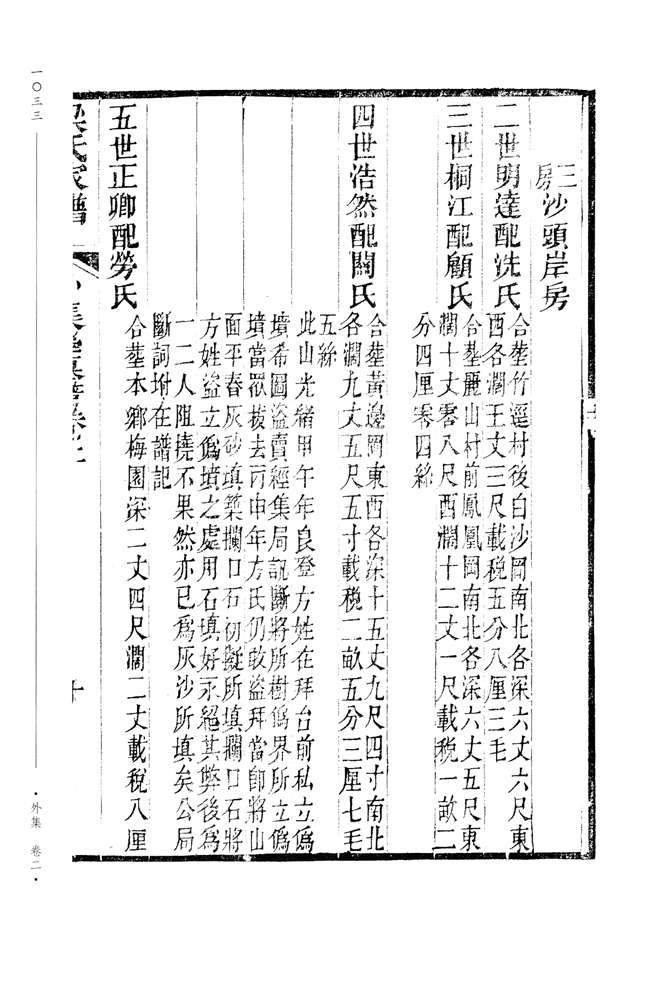 三房沙頭岸房
二世明達配冼氏
合塟竹逕村後白沙岡南北各深六丈六尺東
西各濶王丈三尺載稅五分八厘三毛
三世桐江配顧氏
合塟麗山村前鳳凰岡南北各深六丈五尺東
濶十丈零八尺西濶十二丈一尺載稅一畝二
分四厘零四絲
四世浩然配關氏
合塟黃邊岡東西各深十五丈九尺四寸南北
各濶九丈五尺五寸載稅二畝五分三厘七毛
五絲
此山光緒甲午年良登方姓在拜台前私立僞
墳希圖盜賣經集局訊斷將所樹僞界所立僞
墳當眾拔去丙申年方氏仍敢盜拜當卽將山
面平舂灰砂填築攔口石初擬所填攔口石將
方姓盜立僞墳之處用石填好永絕其弊後爲
一二人阻撓不果然亦已爲灰沙所填矣公局
斷詞坿在譜記
五世正卿配勞氏
合塟本鄉梅園深二丈四尺濶二丈載稅八厘
梁氏家譜
十
一〇三三
·外集 卷二·